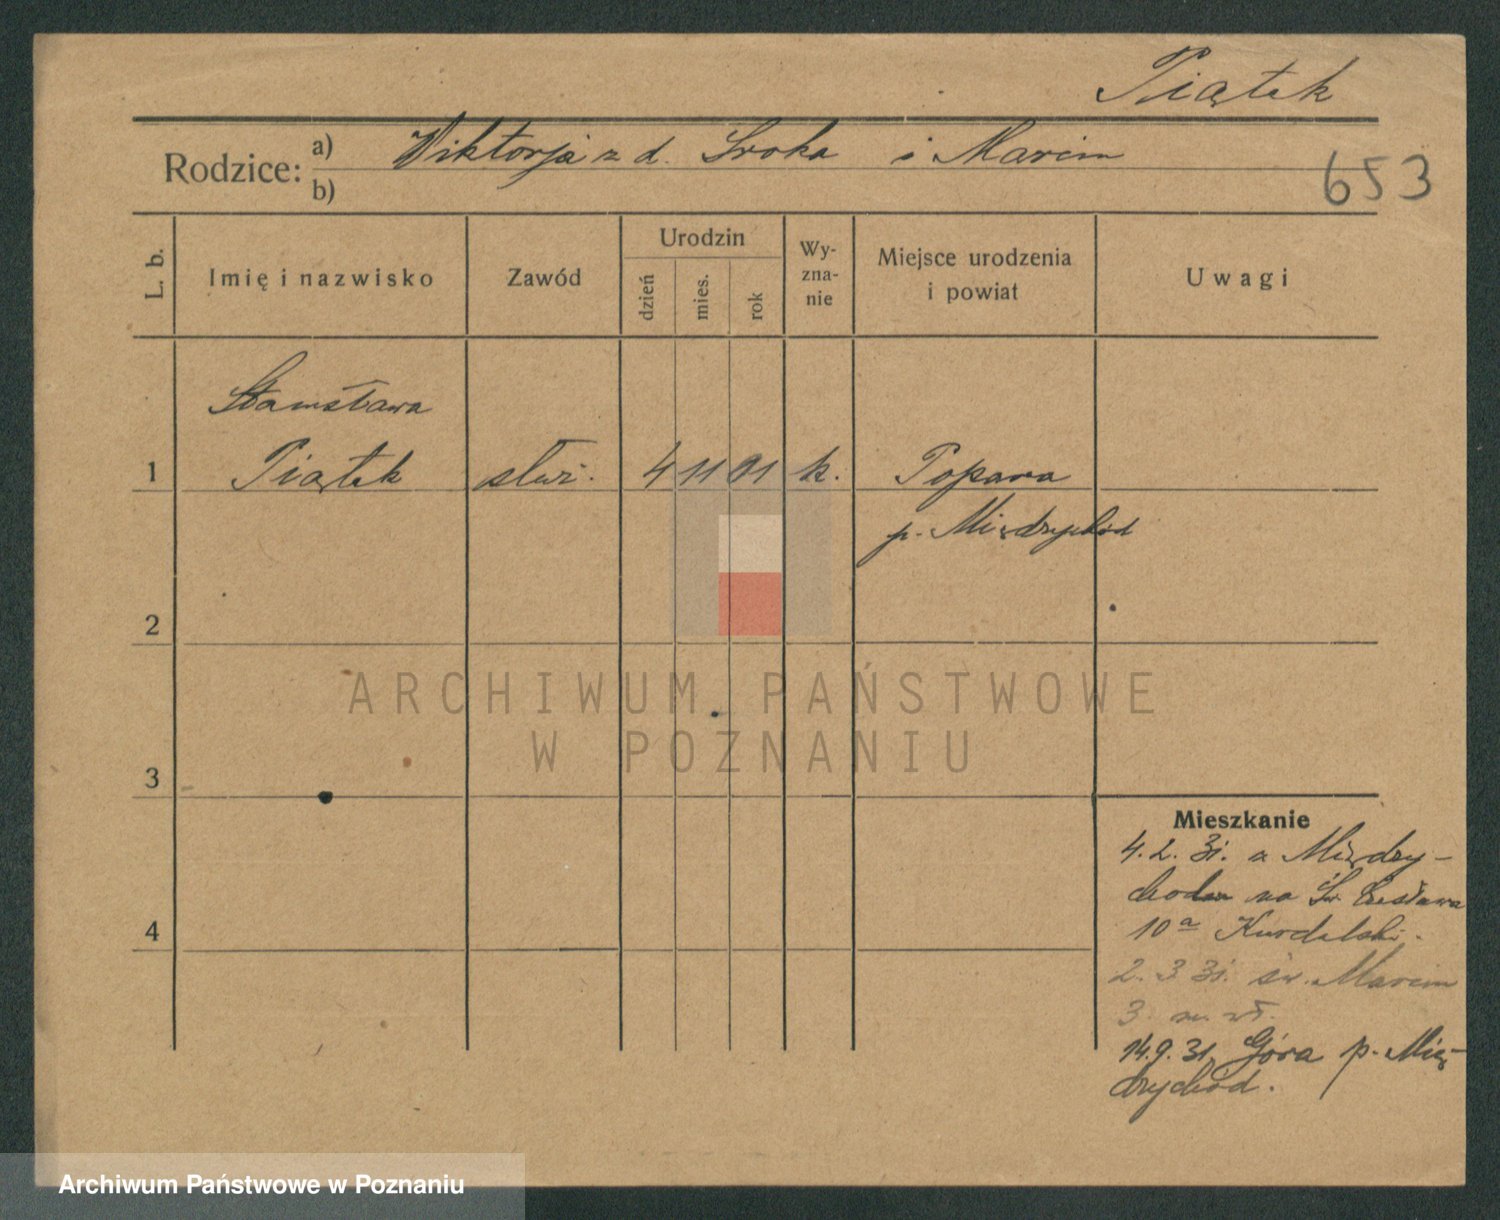 Piątek
Rodzice: a) Wiktorja z d. Sroka i Marcin
b)
653
L. b.
Imię i nazwisko
Zawód
Urodzin
dzień
mies.
rok
Wy-
zna-
nie
Miejsce urodzenia
i powiat
Uwagi
Stanisława
1 Piątek służ. 4 11 01 k. Popowo
p. Międzychód
2
ARCHIWUM PAŃSTWOWE
W POZNANIU
3
Mieszkanie
4.2.31. z Między-
chodu na Św. Czesława
4
10a Kurdelski.
2.3 31. św. Marcin
3.
14.9.31. Góra p. Mię-
dzychód.
Archiwum Państwowe w Poznaniu